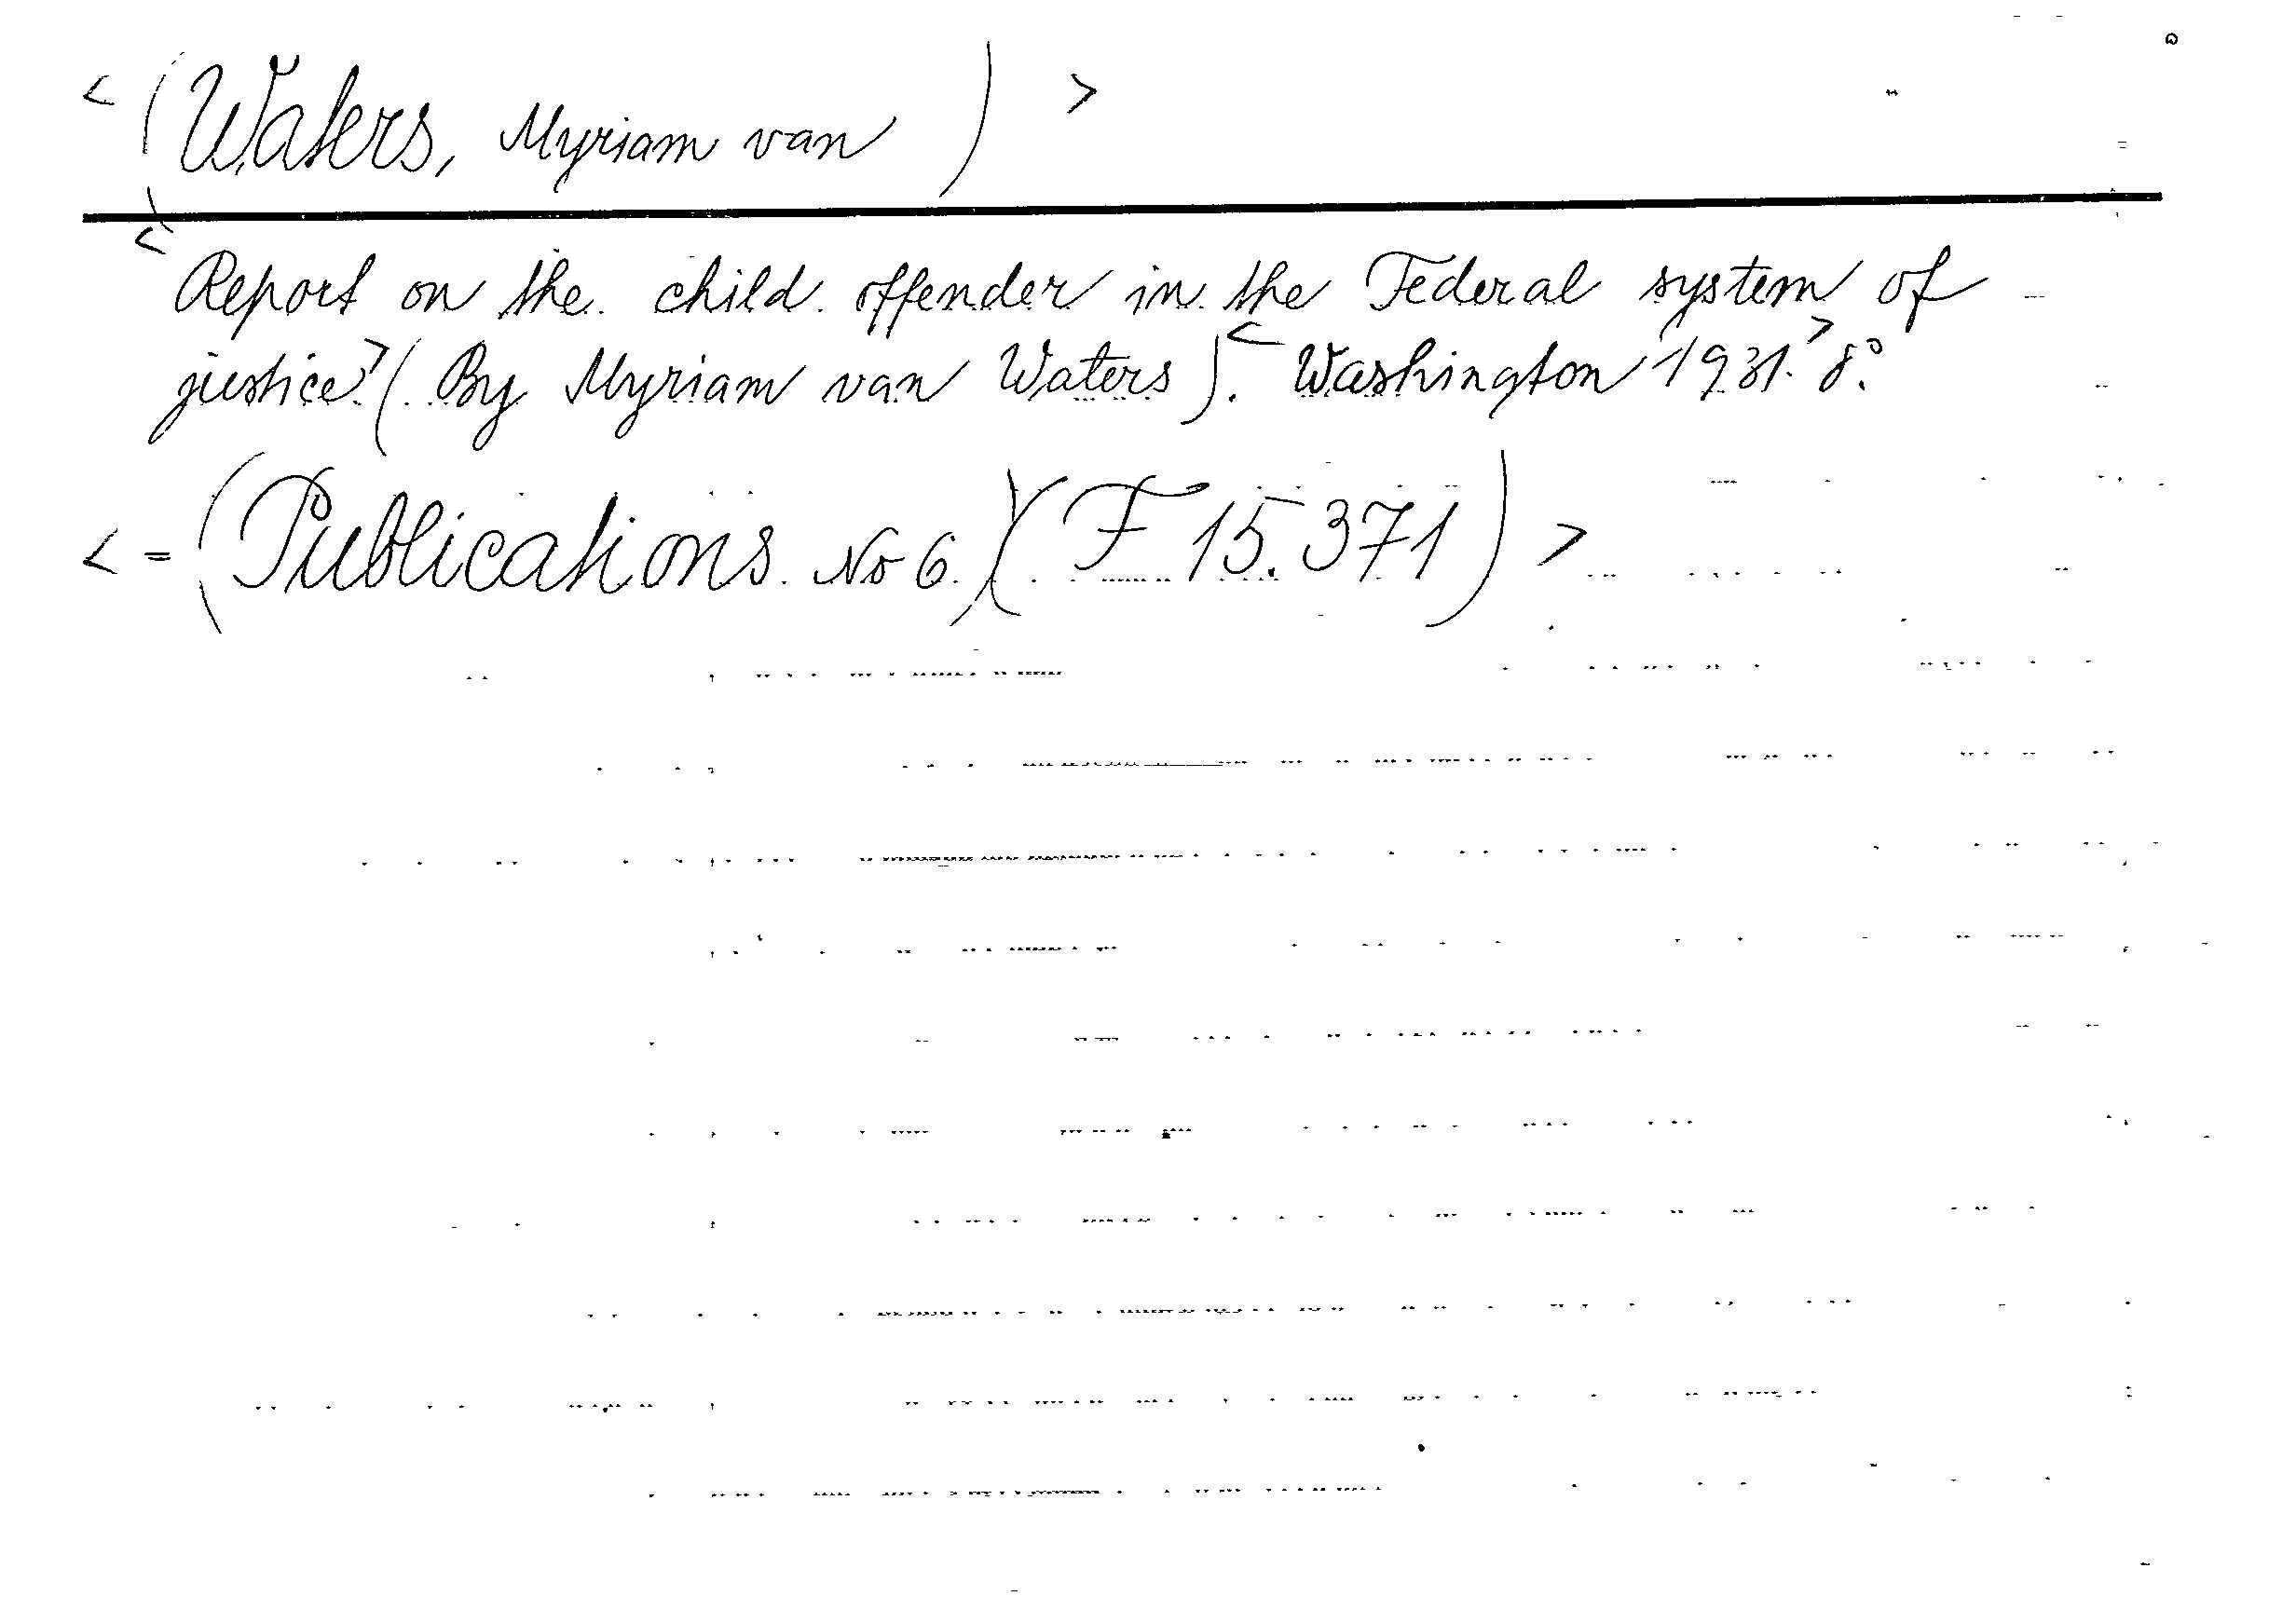 < (Waters, Myriam van) >
< Report on the child offender in the Federal system of
justice > (By Myriam van Waters). < Washington 1931. > 8º.
< = (Publications. No 6.) (F 15.371) >